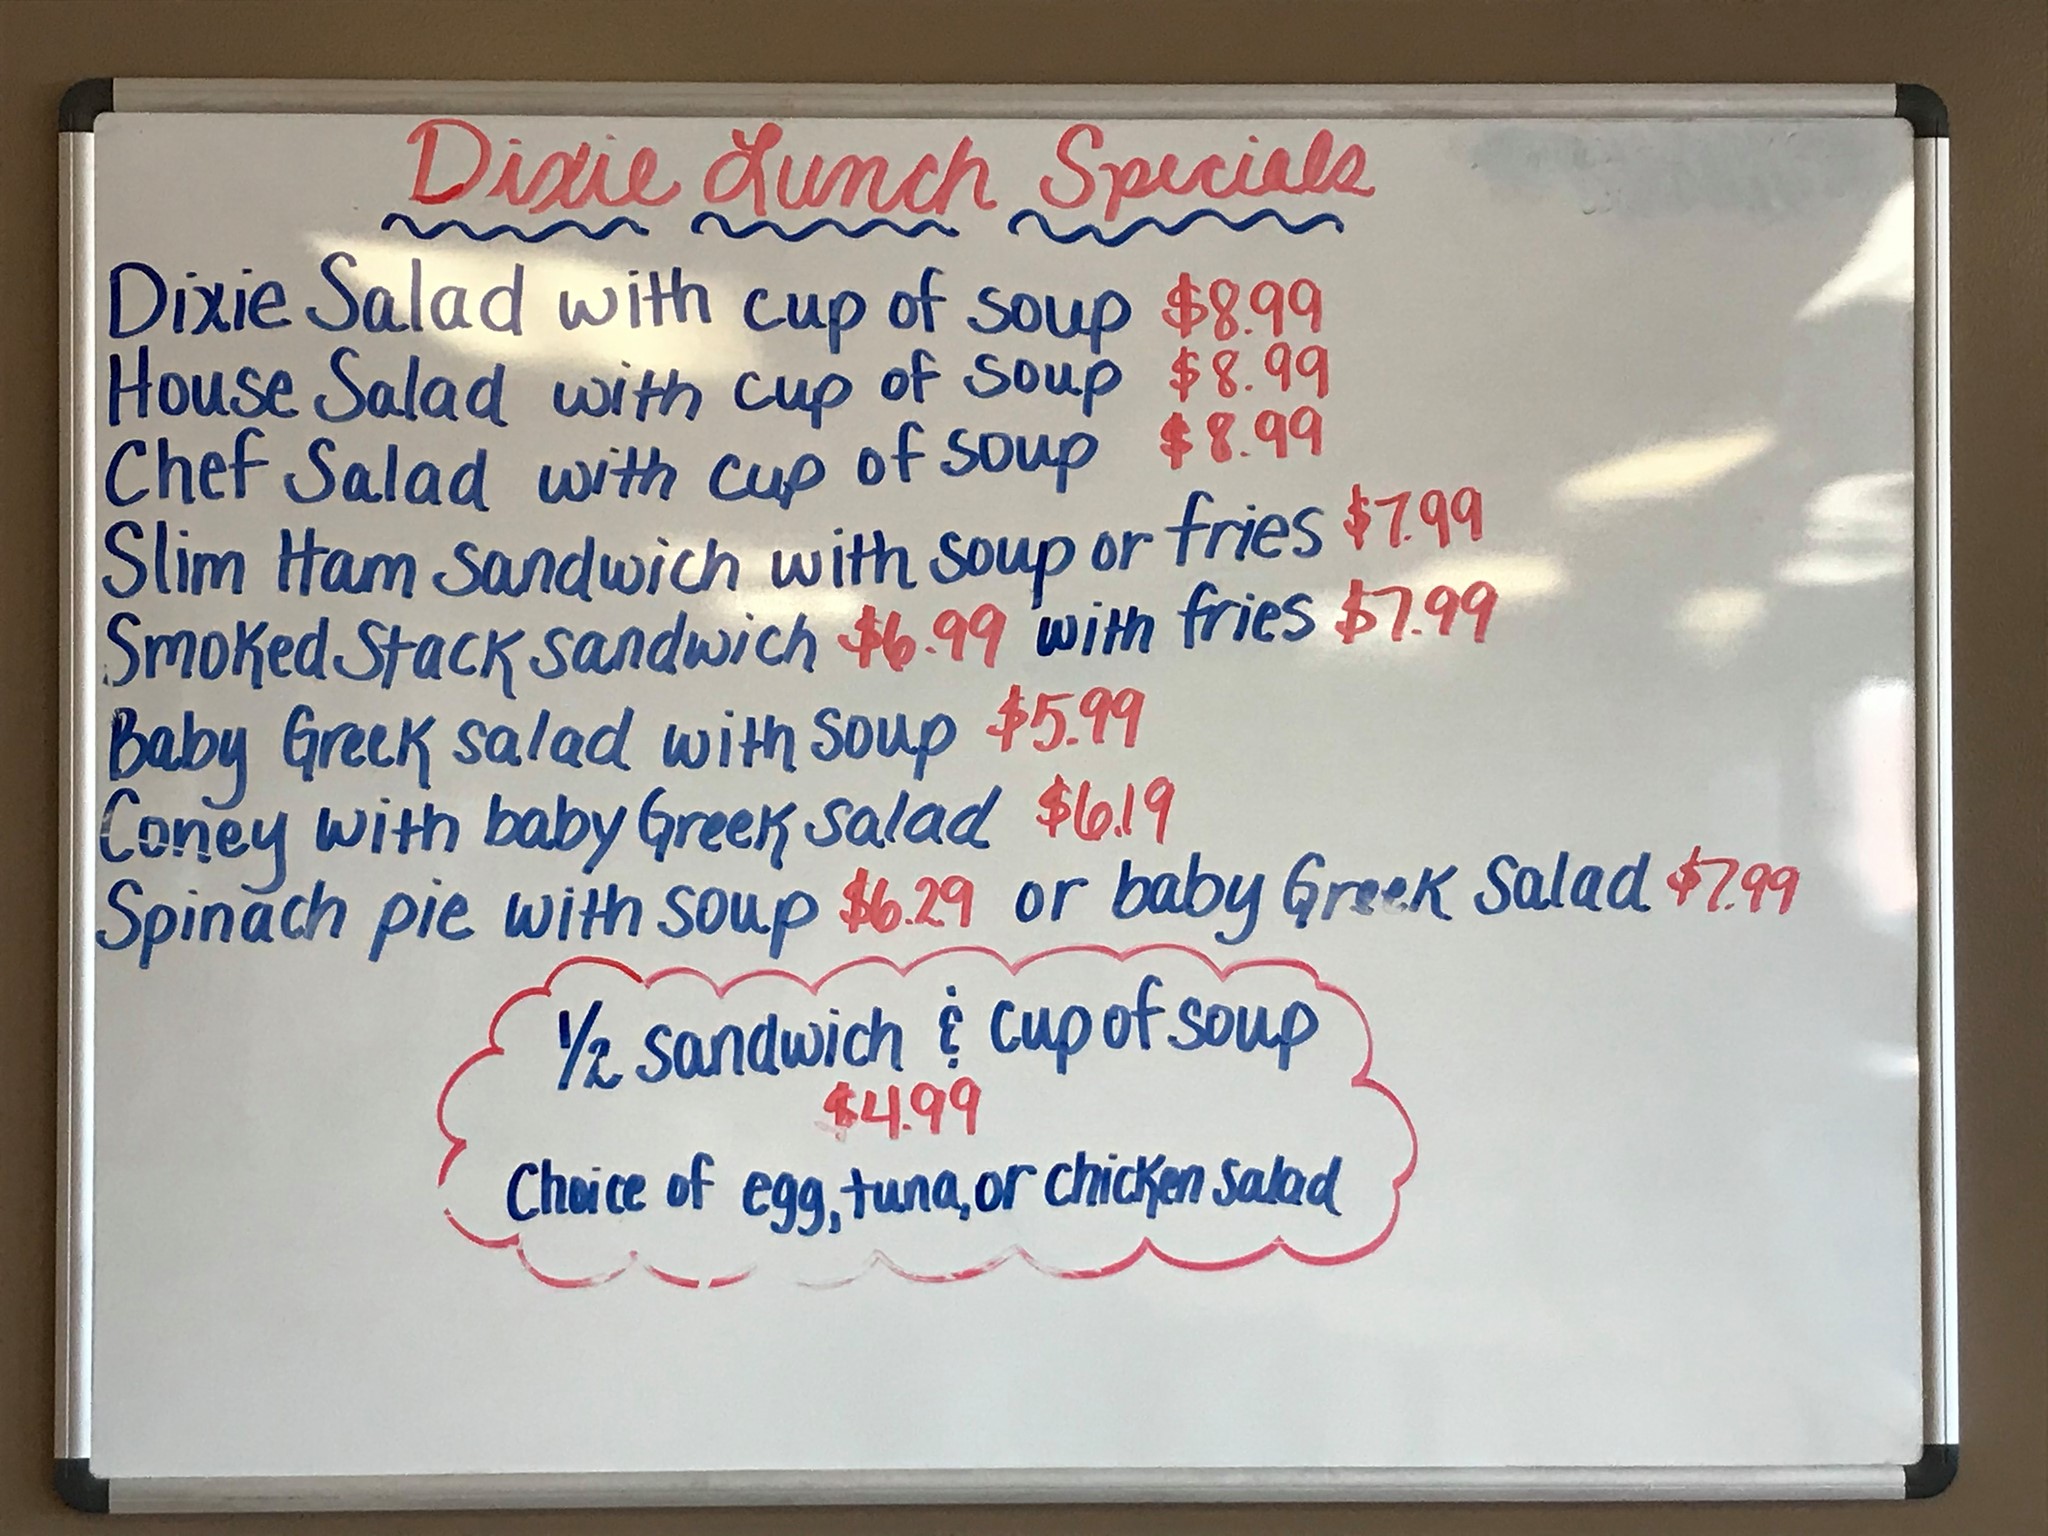 Dixie Lunch Specials
Dixie Salad with cup of soup $8.99
House Salad with cup of soup $8.99
Chef Salad with cup of soup $8.99
Slim Ham sandwich with soup or fries $7.99
Smoked Stack sandwich $6.99 with fries $7.99
Baby Greek salad with soup $5.99
Coney with baby Greek salad $6.19
Spinach pie with soup $6.29 or baby Greek Salad $7.99
1/2 sandwich & cup of soup
$4.99
Choice of egg, tuna, or chicken salad